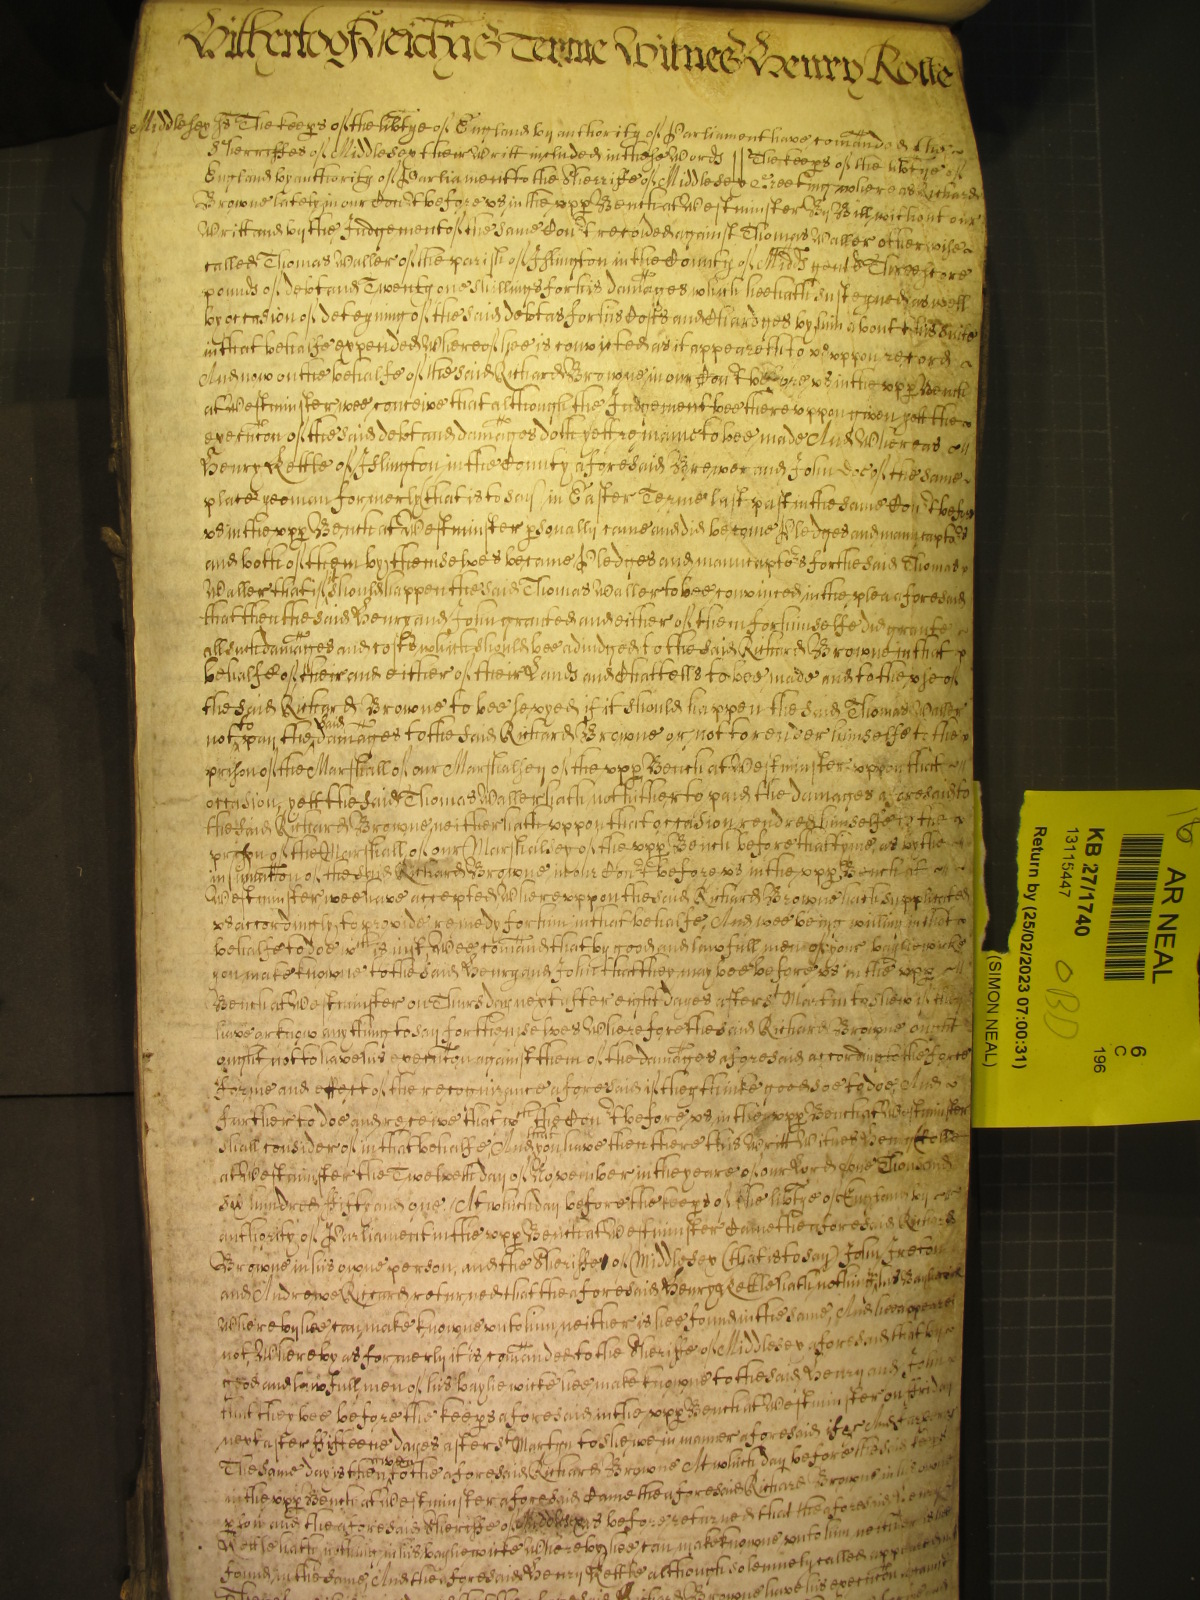 Michaelis Terme Witnes Henry Rolle
Middlesex ss The keeps of the libtye of England by authority of Parliament have comanded the
Sherriffes of Middlesex their Writt included in these Words ss The keeps of the libtye of
England by authority of Parliament to the Sherriffe of Middlesex Greeting whereas Richard
Browne lately in our Cort before us in the upp Bench at Westminster By Bill without our
Writt and by the Judgement of the same Cort recovered against Thomas Waller otherwise
called Thomas Waller of the parish of Islington in the County of Midd gent Threescore
pounds of debt and Twenty one shillings for his damages which hee hath susteyned as well
by occasion of deteyning of the said debt as for his Costs and Chardges by him about his suite
in that behalfe expended Whereof hee is convicted as it appeareth to us uppon record
And now on the behalfe of the said Richard Browne in our Cort before us in the upp Bench
at Westminster wee conceive that although the Judgement bee thereuppon given yett the
execucon of the said debt and damages doth yett remaine to bee made And Whereas
Henry Kettle of Islington in the County aforesaid Brewer and John Doe of the same
place yeoman formerly (that is to say) in Easter Terme last past in the same Cort before
us in the upp Bench at Westminster psonally came and did become Pledges and manucaptrs
and both of them by themselves became Pledges and manucaptrs for the said Thomas
Waller that if it should happen the said Thomas Waller to bee convinced in the plea aforesaid
that then the said Henry and John granted and either of them for himselfe did graunte
all such damages and costs which should bee adjudged to the said Richard Browne in that
behalfe of their and either of their Lands and Chattells to bee made and to the use of
the said Richard Browne to bee levyed if it should happen the said Thomas Waller
not to pay the said damages to the said Richard Browne or not to render himselfe to the
prison of the Marshall of our Marshalsey of the upp Bench at Westminster uppon that
occasion yett the said Thomas Waller hath not hitherto paid the damages aforesaid to
the said Richard Browne neither hath uppon that occasion rendred himselfe to the
prison of the Marshall of our Marshalsey of the upp Bench before that tyme, as by the
insinuation of the said Richard Browne in our Cort before us in the upp Bench at
Westminster wee have accepted Whereuppon the said Richard Browne hath supplicated
us accordingly to provide remedy for him in that behalfe, And wee being willing in that
behalfe to doe wch is just, Wee comand that by good and lawfull men of your bayliewicke
you make knowne to the said Henry and John that they may bee before us in the upp
Bench at Westminster on Thursday next after eight dayes after St Martin to shew if they
have or know any thing to say for themselves Wherefore the said Richard Browne
ought not to have his execucon against them of the damages aforesaid according to the force
forme and effect of the recognizance aforesaid if they thinke good soe to doe, And
farther to doe and receive that wch the Cort before us in the upp Bench at Westminster
shall consider of in that behalfe And that you have then there this Writt Witnes Henry Rolle
at Westminster the Twelveth day of November in the yeare of our Lord one Thousand
six hundred fifty and one, At which day before the keeps of the libtye of England by
authority of Parliament in the upp Bench at Westminster Came the aforesaid Richard
Browne in his owne person, and the Sheriffe of Middlesex (that is to say) John Ireton
and Andrewe Riccard returned that the aforesaid Henry Kettle hath nothing in his Bayliewicke
Whereby hee can make knowne unto him, neither is hee found in the same, And hee appeares
not, Whereby as formerly it is comanded to the Sheriffe of Middlesex aforesaid that by
good and lawfull men of his bayliewicke hee make knowne to the said Henry and John
that they bee before the keeps aforesaid in the upp Bench at Westminster on Friday
next after Fifteene dayes after St Martyn to shewe in manner aforesaid if &c And farther
The same day is then given to the aforesaid Richard Browne At which day before the said keeps
in the upp Bench at Westminster aforesaid Came the aforesaid Richard Browne in his owne
pson and the aforesaid Sheriffe of Middlesex as before returned that the aforesaid Henry
Kettle hath nothing in his bayliewicke Whereby hee can make knowne unto him neither is hee
found in the same, And the aforesaid Henry Kettle although solemnely called appeared not
Browne have his execucon against
AR NEAL
KB 27/1740
13115447
Return by (25/02/2023 07:00:31)
(SIMON NEAL)
6
C
196
OBD